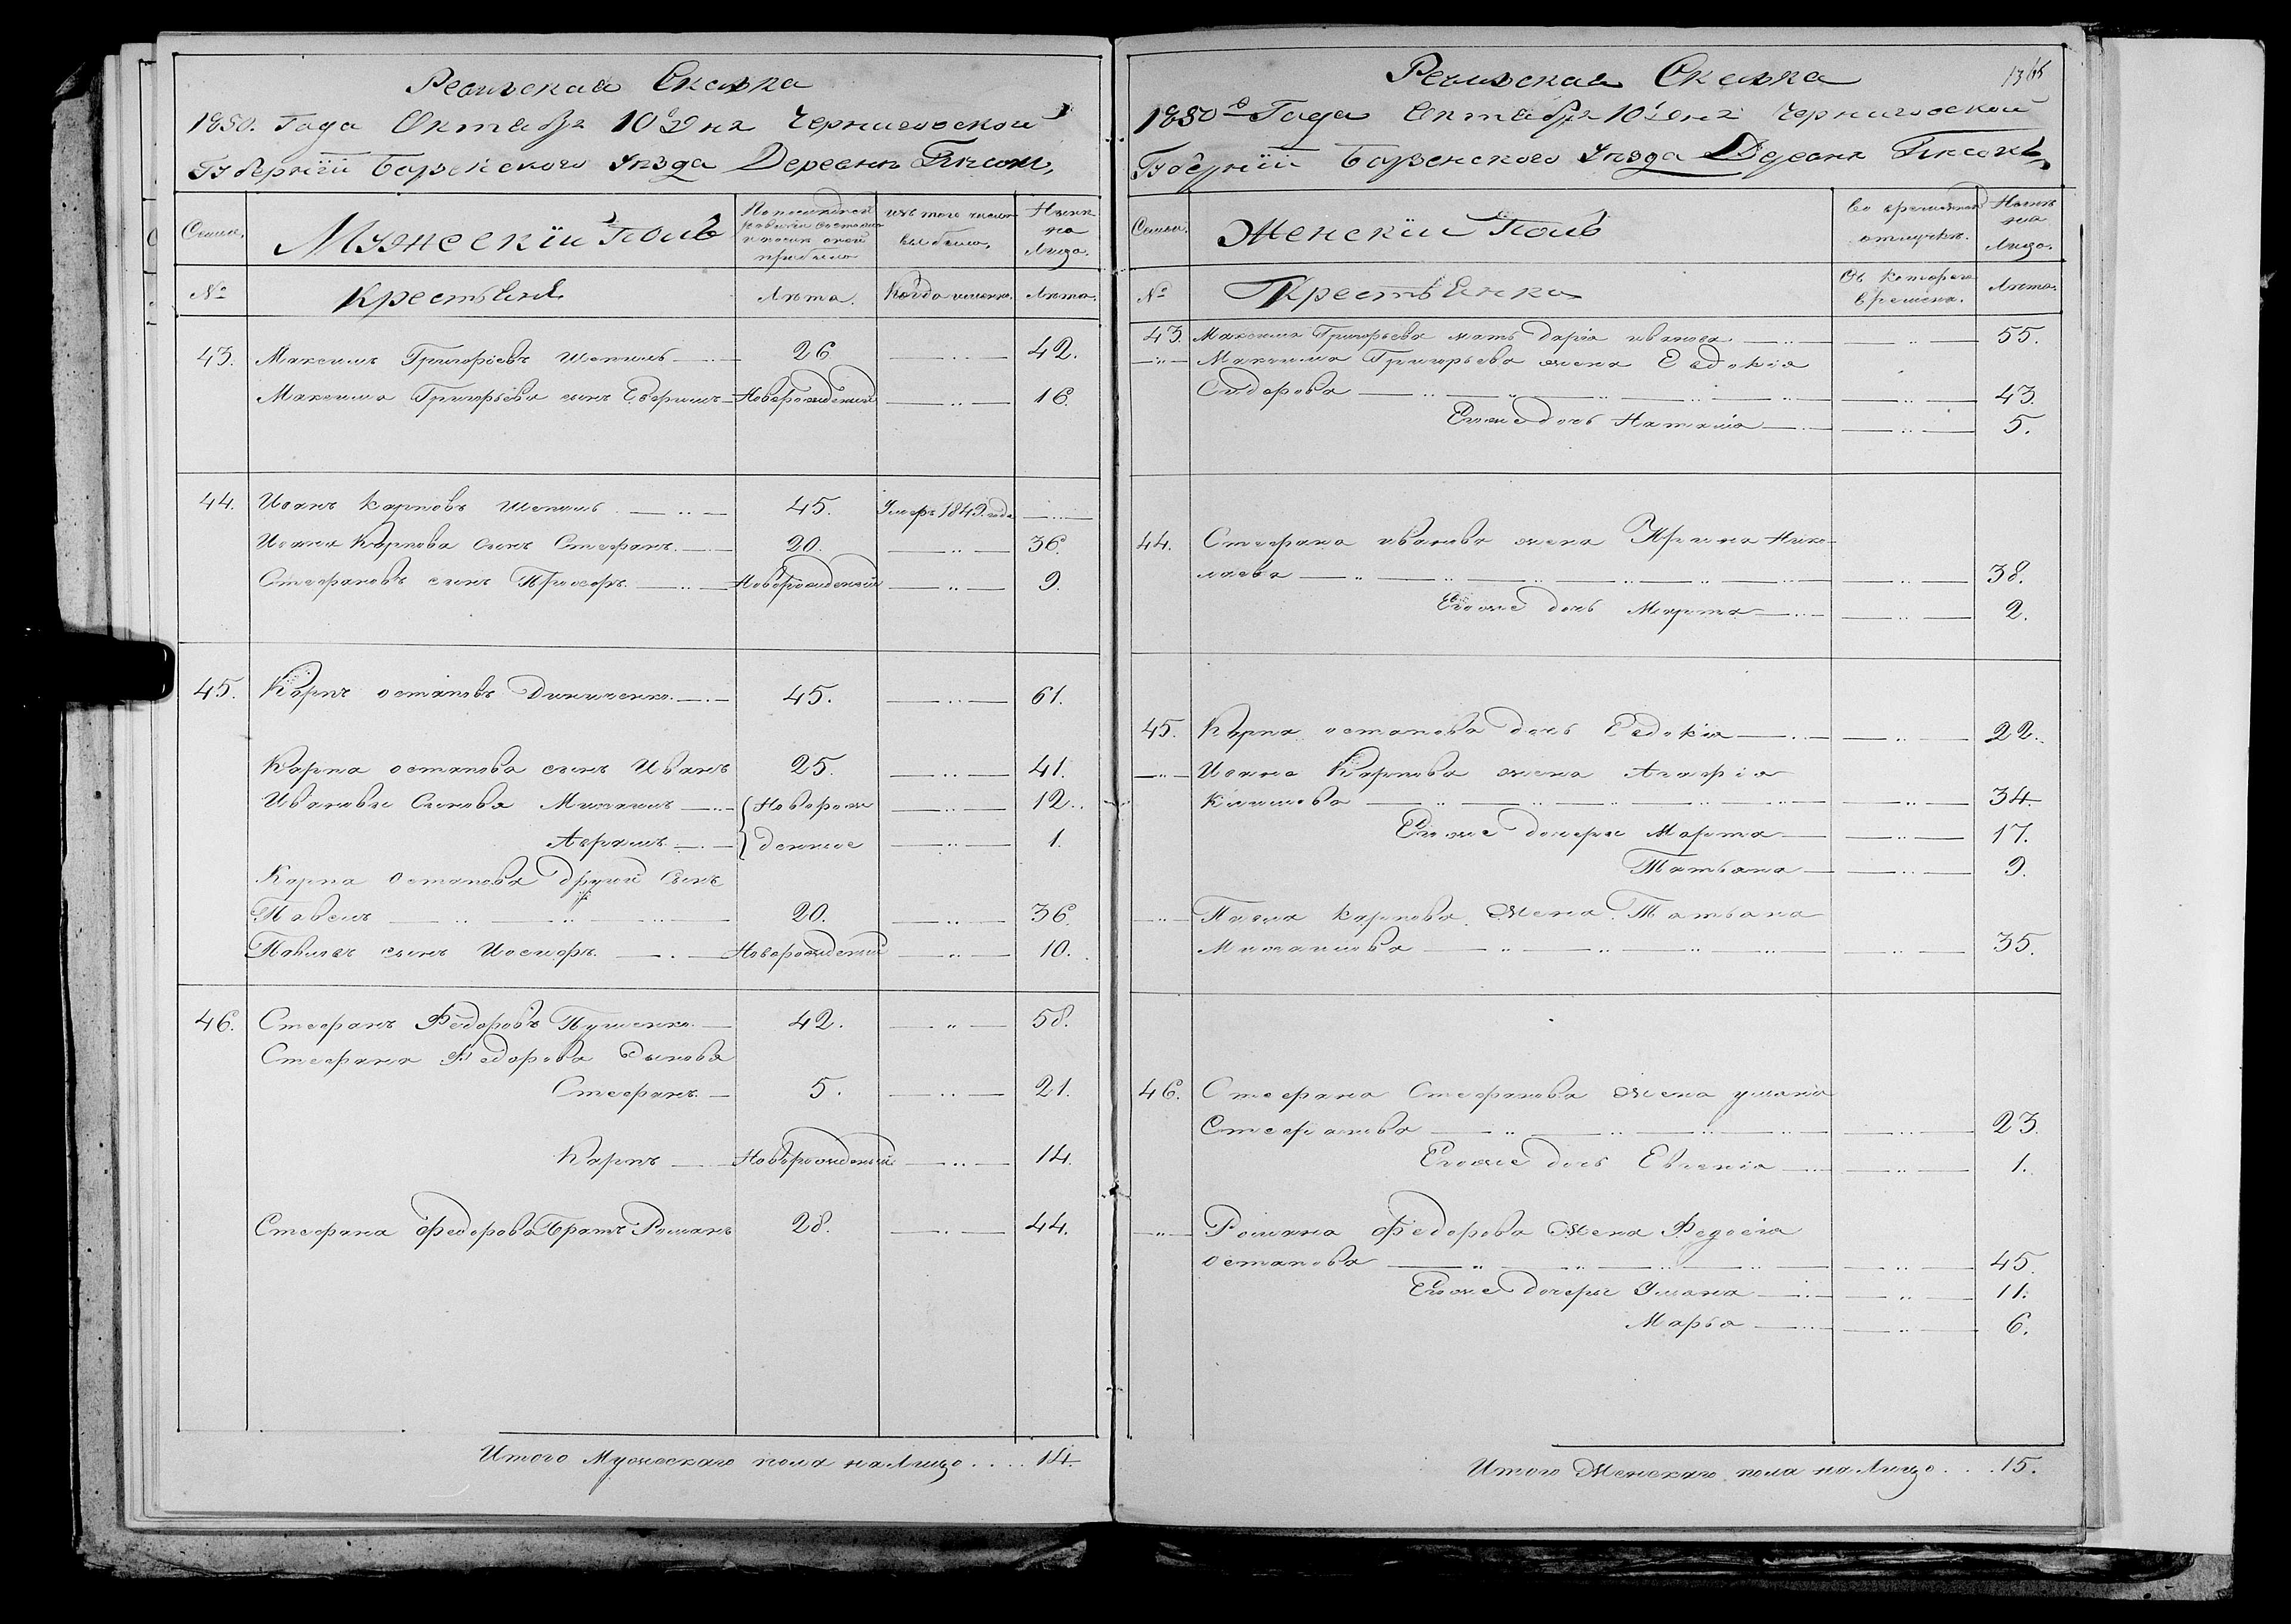 Ревизская Сказка
1850. Года Октября 10 Дня Черниговской
Губернiи Борзенского Уезда Деревни Пески,
Семьи.
Мужескiй Полъ
По последней ревизiи состояло и после оной прибыло
изъ того числа выбыло.
Ныне на Лицо.
№
Крестьяне
Лета.
Когда именно.
Лета.
43. Максимъ Григорiевъ Шепель 26 42.
Максима Григорьева сынъ Ефремъ Новорожденный 16.
44. Иванъ Карповъ Шепель 45. Умеръ 1849. года
Ивана Карпова сынъ Стефанъ 20. 36.
Стефановъ сынъ Новорожденный 9.
45. Карпъ остаповъ 45. 61.
Карпа остапова сынъ Иванъ 25. 41.
Ивановы Сыновья Михаилъ Новорож 12.
Аврамъ денные 1.
Карпа Остапова другой Сынъ
Павелъ 20. 36.
Павловъ сынъ Иосифъ. Новорожденный 10.
46. Стефанъ Федоровъ 42. 58.
Стефана Федорова Сыновья
Стефанъ 5. 21.
Карпъ Новорожденный 14.
Стефана Федорова Братъ Романъ 28. 44.
Итого Мужескаго пола на Лицо . . . . 14.
Ревизская Сказка
1850 Года Октября 10 дня Черниговской
Губернiи Борзенского Уезда Деревни Пески,
Семьи.
Женскiй Полъ
Во временной отлучке.
Ныне на Лицо.
№
Крестьянка
Съ котораго времени.
Лета.
43. Максима Григорьева мать дарiа иванова 55.
Максима Григорьева жена Евдокiя
Сидорова 43.
Егоже дочь Наталiа 5.
44. Стефана иванова жена Ирина Нико-
лаева 38.
Егоже дочь Марта 2.
45. Карпа остапова дочь Евдокiя 22.
Ивана Карпова жена Агафiя
34.
Егоже дочери Марта 17.
Татьяна 9.
Павла Карпова Жена Татьяна
Михаилова 35.
46. Стефана Стефанова Жена улiана
Стефанова 23.
Егоже дочь Евгенiя 1.
Романа Федорова Жена Федосiя
остапова 45.
Егоже дочери Улiана 11.
Марья 6.
Итого Женскаго пола на Лицо . . . 15.